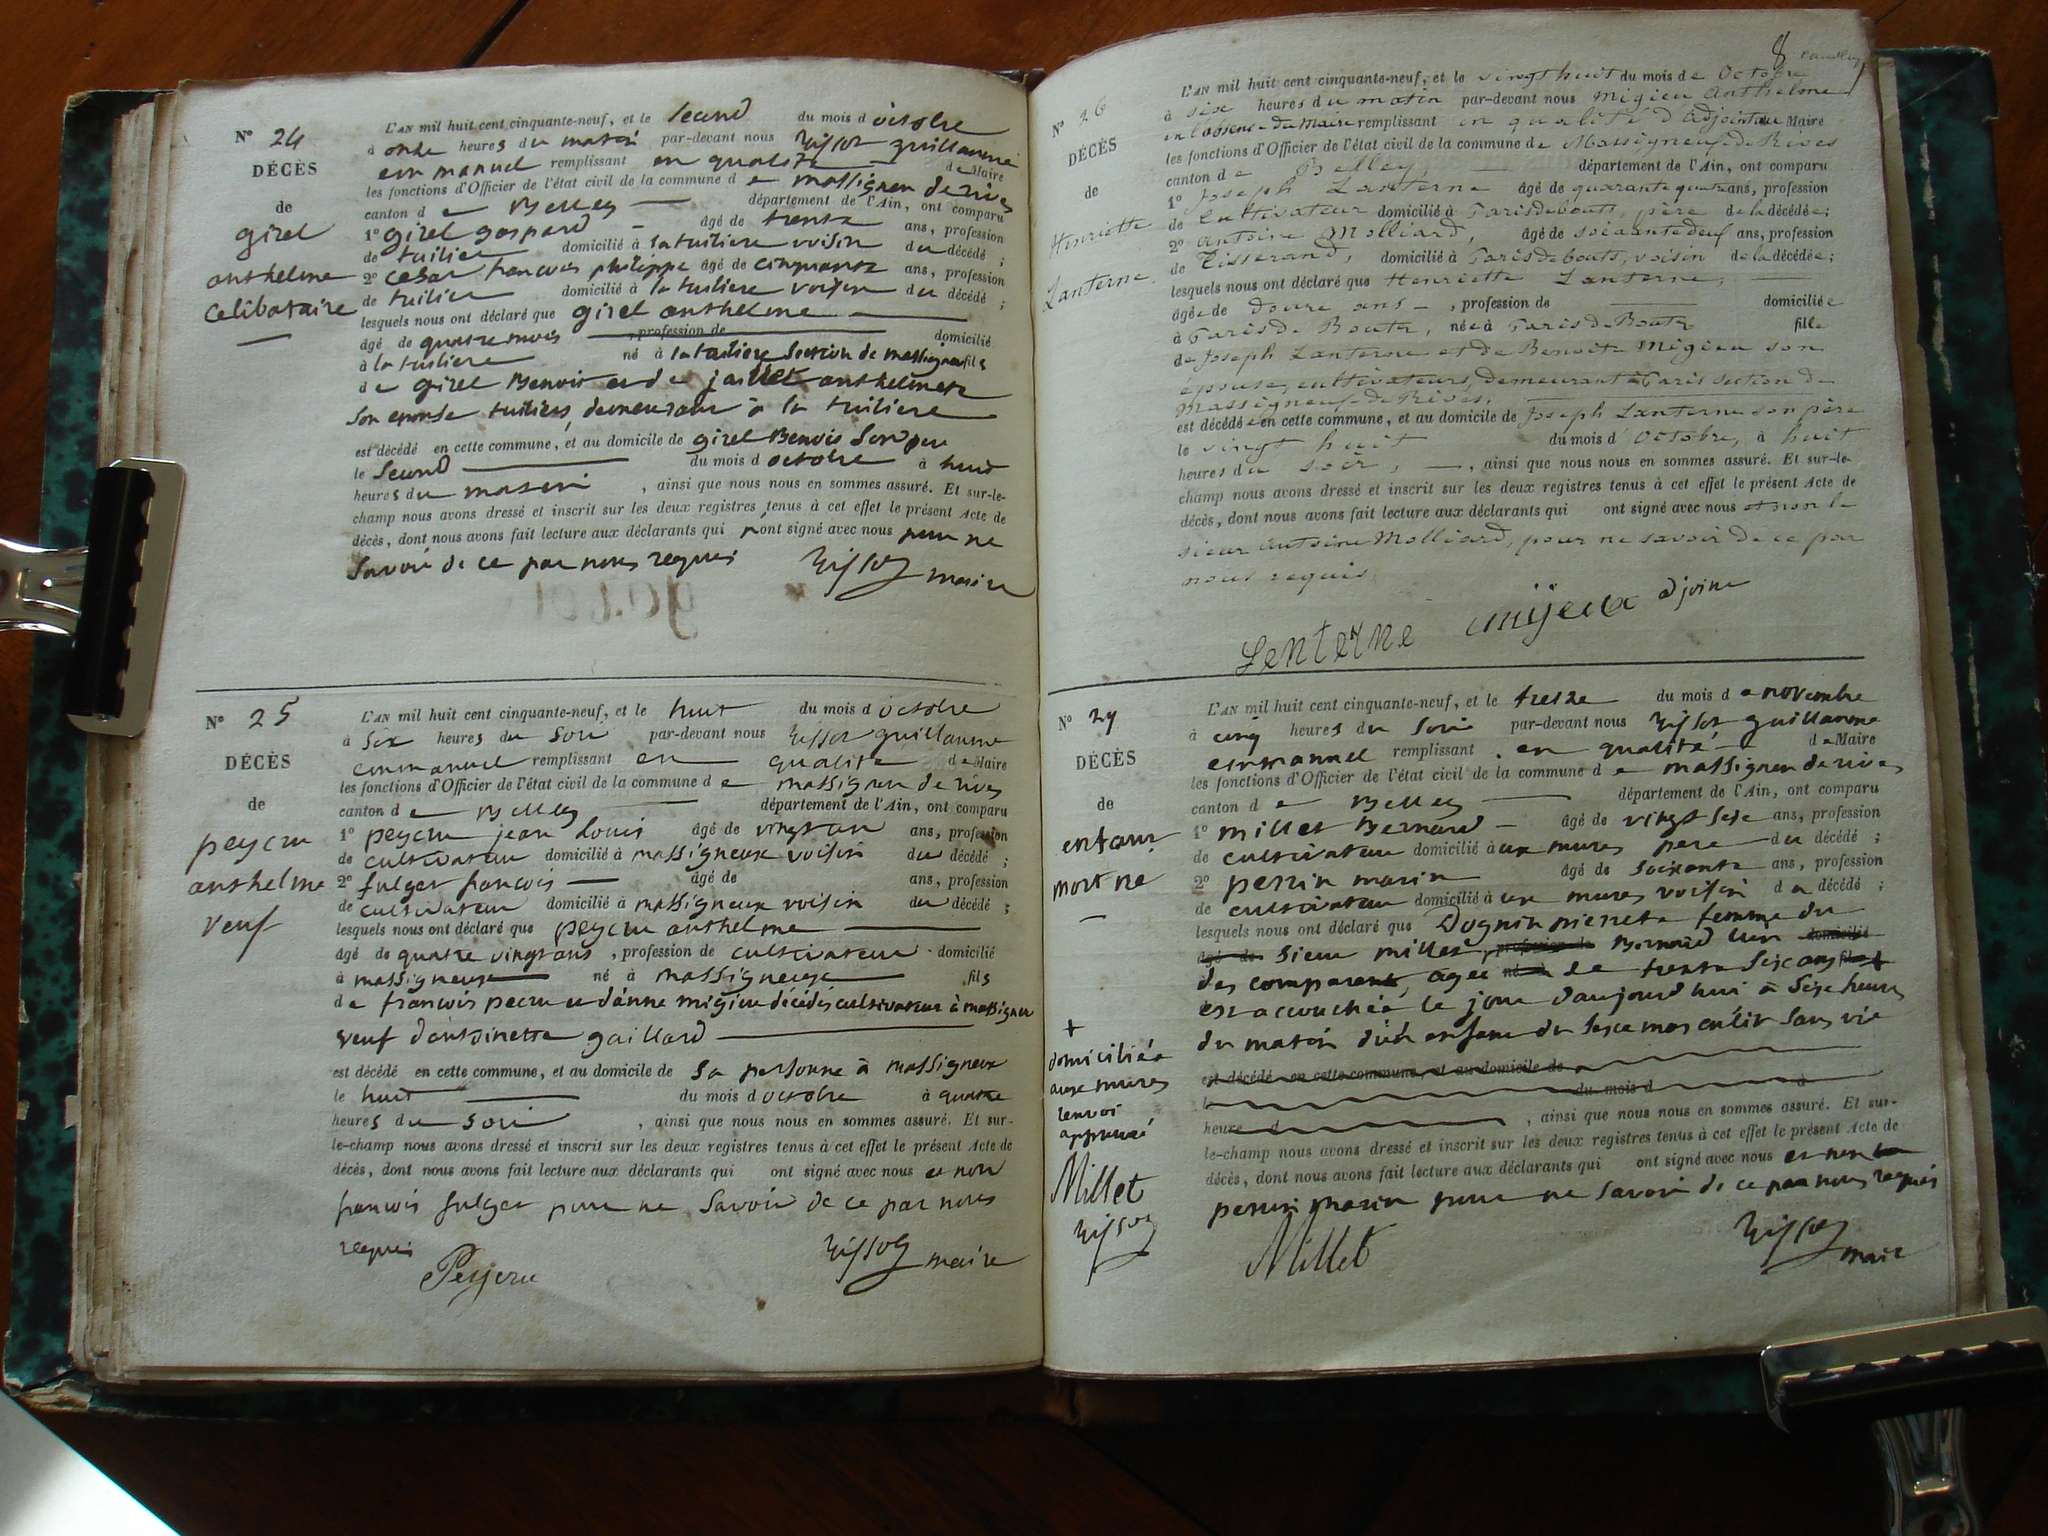 N° 24
DÉCÈS
de
girel
anthelme
celibataire
L'AN mil huit cent cinquante-neuf, et le second du mois d'octobre
à onze heures du matin par-devant nous guillaume
emmanuel remplissant en qualité de Maire
les fonctions d'Officier de l'état civil de la commune de massigneu de rives
canton de Belley département de l'Ain, ont comparu
1° girel gaspard âgé de trente ans, profession
de tuilier domicilié à la tuiliere voisin du décédé ;
2° cesar francois philippe âgé de cinquante ans, profession
de tuilier domicilié à la tuiliere voisin du décédé ;
lesquels nous ont déclaré que girel anthelme
âgé de quatre mois , profession de domicilié
à la tuiliere né à la tuiliere section de massigneu fils
de girel Benoit et de jaillet anthelmete
son eponse tuiliers, demeurant à la tuiliere
est décédé en cette commune, et au domicile de girel Benoit son pere
le second du mois d'octobre à huit
heures du matin , ainsi que nous nous en sommes assuré. Et sur-le-
champ nous avons dressé et inscrit sur les deux registres tenus à cet effet le présent Acte de
décès, dont nous avons fait lecture aux déclarants qui n'ont signé avec nous pour ne
savoir de ce par nous requis
maire
N° 25
DÉCÈS
de
peycru
anthelme
veuf
L'AN mil huit cent cinquante-neuf, et le huit du mois d'octobre
à six heures du soir par-devant nous guillaume
emmanuel remplissant en qualité de Maire
les fonctions d'Officier de l'état civil de la commune de massigneu de rives
canton de Belley département de l'Ain, ont comparu
1° peycru jean louis âgé de vingt ans, profession
de cultivateur domicilié à massigneux voisin du décédé ;
2° fulger francois âgé de ans, profession
de cultivateur domicilié à massigneux voisin du décédé ;
lesquels nous ont déclaré que peycru anthelme
âgé de quatre vingt ans , profession de cultivateur domicilié
à massigneux né à massigneux fils
de francois pecru et d'anne migieu décédés cultivateur à massigneu
veuf d'antoinette gaillard
est décédé en cette commune, et au domicile de sa personne à massigneux
le huit du mois d'octobre à quatre
heures du soir , ainsi que nous nous en sommes assuré. Et sur-
le-champ nous avons dressé et inscrit sur les deux registres tenus à cet effet le présent Acte de
décès, dont nous avons fait lecture aux déclarants qui ont signé avec nous et non
francois fulger pour ne savoir de ce par nous
requis
maire
8
N° 26
DÉCÈS
de
Henriette
Lanterne
L'AN mil huit cent cinquante-neuf, et le vingt huit du mois de Octobre
à six heures du matin par-devant nous Migieu Anthelme
en l'absence du Maire remplissant en qualité d'Adjoint au Maire
les fonctions d'Officier de l'état civil de la commune de Massigneux de Rives
canton de Belley département de l'Ain, ont comparu
1° Joseph Lanterne âgé de quarante quatre ans, profession
de Cultivateur domicilié à Paris de bouts, père de la décédée ;
2° Antoine Molliard, âgé de soixante deux ans, profession
de Tisserand, domicilié à Paris de bouts, voisin de la décédée ;
lesquels nous ont déclaré que Henriette Lanterne,
âgée de douze ans , profession de domiciliée
à Paris de Boutz, née à Paris de Boutz fille
de Joseph Lanterne et de Benoite Migieu son
épouse, cultivateurs, demeurant à Paris section de
Massigneux de Rives.
est décédée en cette commune, et au domicile de Joseph Lanterne son père
le vingt huit du mois d'Octobre, à huit
heures du soir, , ainsi que nous nous en sommes assuré. Et sur-le-
champ nous avons dressé et inscrit sur les deux registres tenus à cet effet le présent Acte de
décès, dont nous avons fait lecture aux déclarants qui ont signé avec nous et non le
sieur Antoine Molliard, pour ne savoir de ce par
nous requis
Lenterne migeux adjoint
N° 27
DÉCÈS
de
enfant
mort né
L'AN mil huit cent cinquante-neuf, et le treize du mois de novembre
à cinq heures du soir par-devant nous guillaume
emmanuel remplissant en qualité de Maire
les fonctions d'Officier de l'état civil de la commune de massigneu de rives
canton de Belley département de l'Ain, ont comparu
1° millet Bernard âgé de vingt seize ans, profession
de cultivateur domicilié à aux mures pere du décédé ;
2° perrin marin âgé de soixante ans, profession
de cultivateur domicilié à aux mures voisin du décédé ;
lesquels nous ont déclaré que Dognin pierrete femme du
âgé de sieur millet, profession de Bernard l'un domicilié
des comparent, agée né à de trente seize ans fils +
est accouchée le jour d'aujourd'hui à seize heures
du matin d'un enfant du sexe masculin sans vie
est décédé en cette commune, et au domicile de
le du mois d à
heure d , ainsi que nous nous en sommes assuré. Et sur-
le-champ nous avons dressé et inscrit sur les deux registres tenus à cet effet le présent Acte de
décès, dont nous avons fait lecture aux déclarants qui ont signé avec nous et non le
perrin marin pour ne savoir de ce par nous requis
Millet
maire
+
domiciliée
aux mures
renvoi
approuvé
Millet